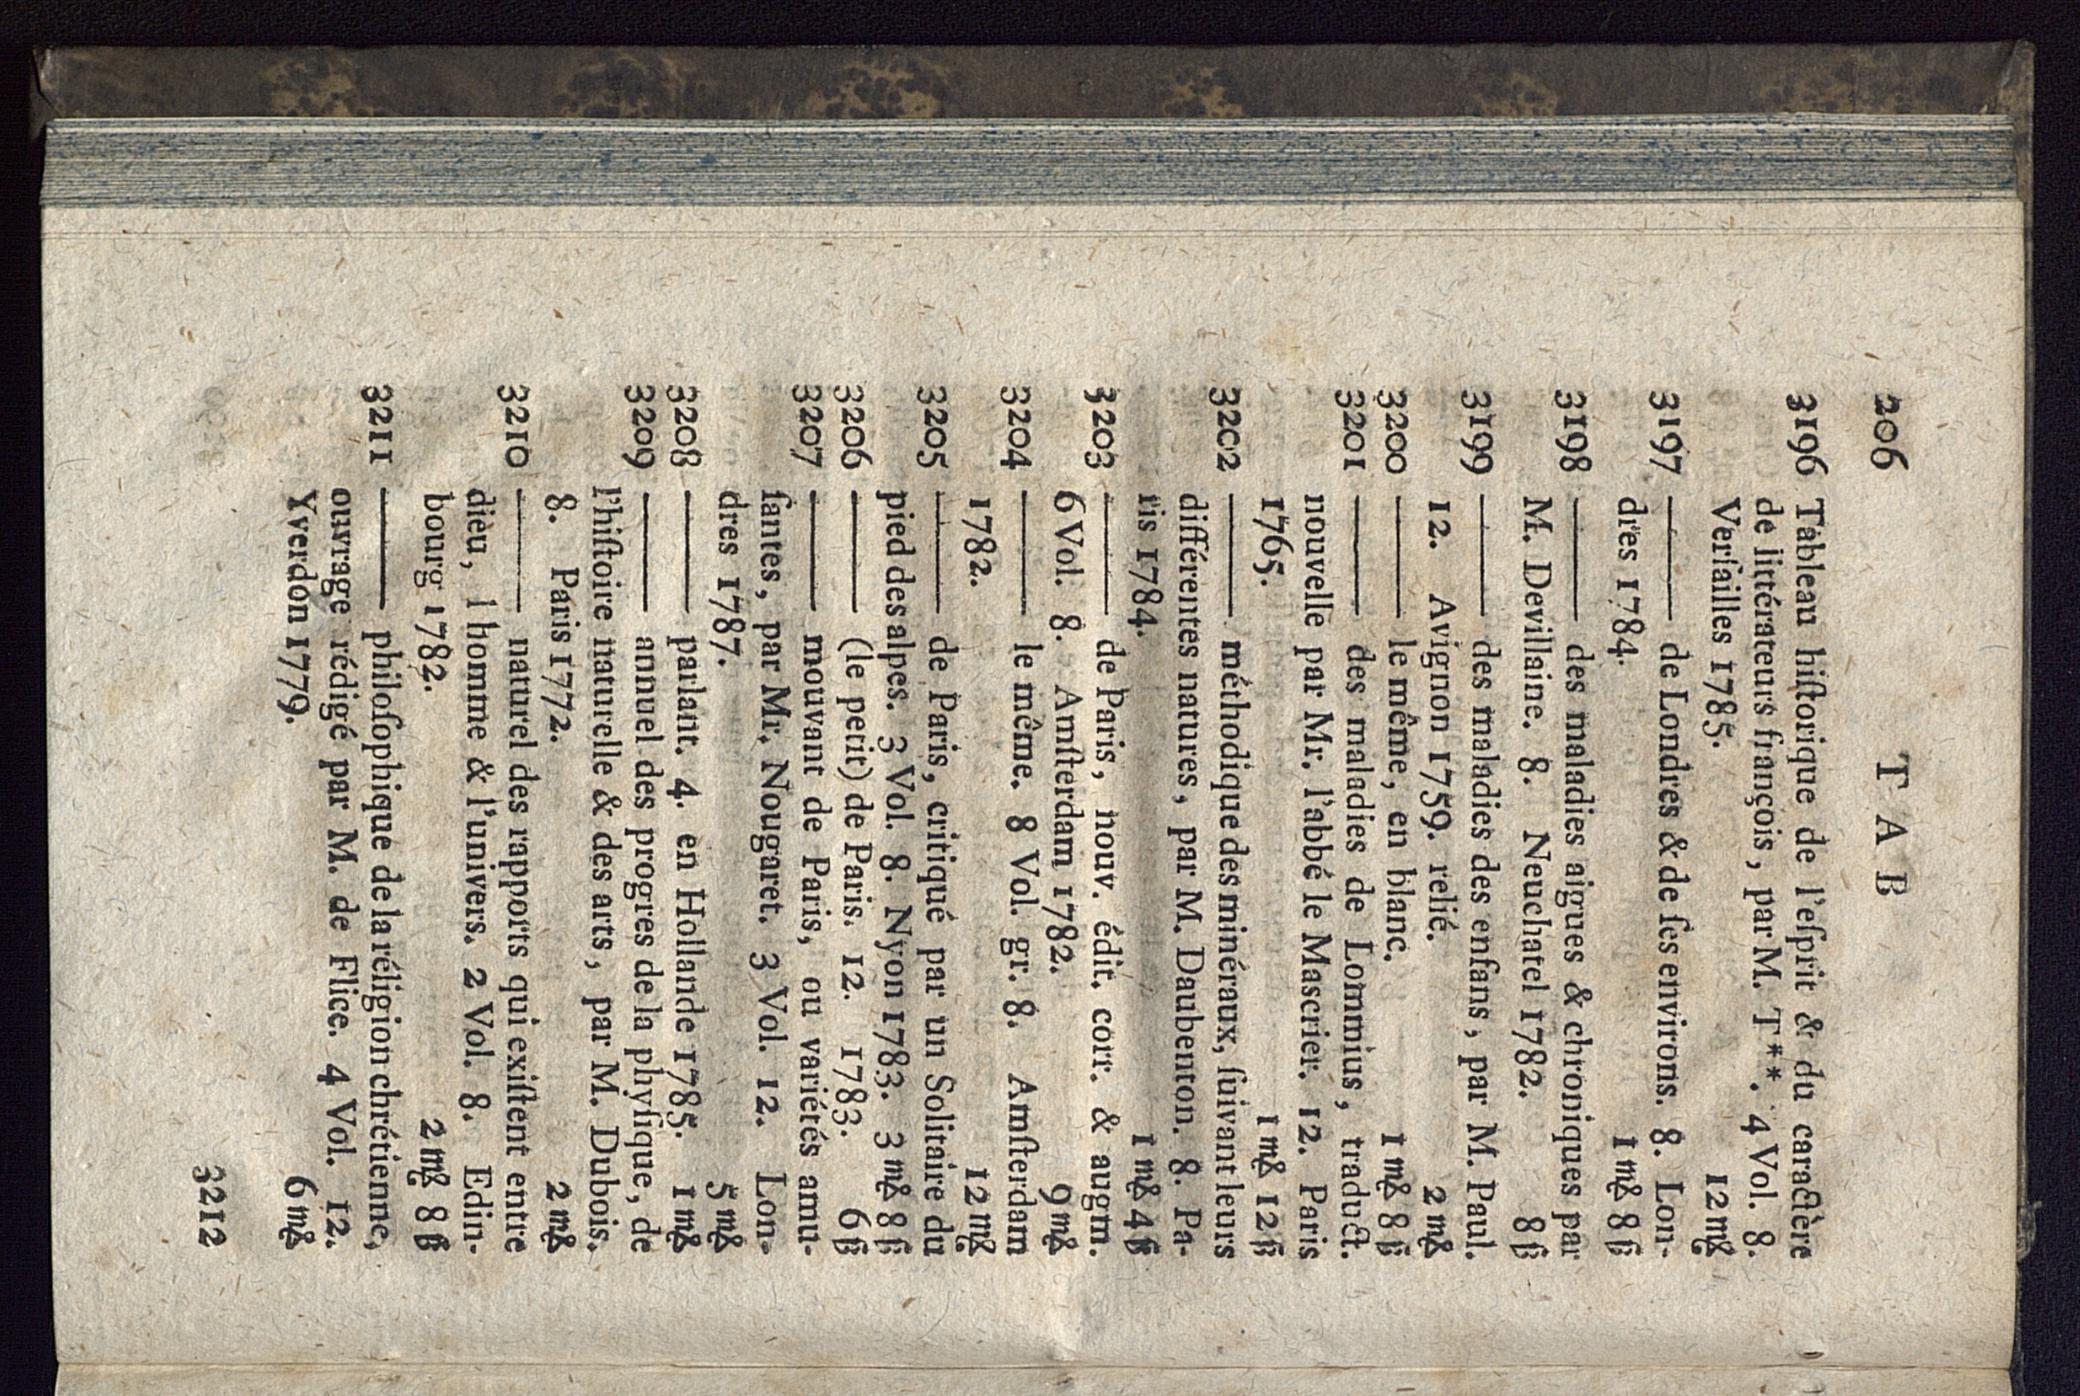 206 T A B
3196 Tableau hiſtorique de l'eſprit & du caractère
de littérateurs françois, par M. T**. 4 Vol. 8.
Verſailles 1785. 12 m&
3197 ——— de Londres & de ſes environs. 8. Lon-
dres 1784. 1 m& 8 ß
3198 ——— des maladies aigues & chroniques par
M. Devillaine. 8. Neuchatel 1782. 8 ß
3199 ——— des maladies des enfans, par M. Paul.
12. Avignon 1759. relié. 2 m&
3200 ——— le même, en blanc. 1 m& 8 ß
3201 ——— des maladies de Lommius, traduct.
nouvelle par Mr. l'abbé le Mascrier. 12. Paris
1765. 1 m& 12 ß
3202 ——— méthodique des minéraux, ſuivant leurs
différentes natures, par M. Daubenton. 8. Pa-
ris 1784. 1 m& 4 ß
3203 ——— de Paris, nouv. édit. corr. & augm.
6 Vol. 8. Amſterdam 1782. 9 m&
3204 ——— le même. 8 Vol. gr. 8. Amſterdam
1782. 12 m&
3205 ——— de Paris, critiqué par un Solitaire du
pied des alpes. 3 Vol. 8. Nyon 1783. 3 m& 8 ß
3206 ——— (le petit) de Paris. 12. 1783. 6 ß
3207 ——— mouvant de Paris, ou variétés amu-
ſantes, par Mr. Nougaret. 3 Vol. 12. Lon-
dres 1787. 5 m&
3208 ——— parlant. 4. en Hollande 1785. 1 m&
3209 ——— annuel des progres de la phyſique, de
l'hiſtoire naturelle & des arts, par M. Dubois.
8. Paris 1772. 2 m&
3210 ——— naturel des rapports qui exiſtent entre
dieu, l homme & l'univers. 2 Vol. 8. Edin-
bourg 1782. 2 m& 8 ß
3211 ——— philoſophique de la réligion chrétienne,
ouvrage rédigé par M. de Flice. 4 Vol. 12.
Yverdon 1779. 6 m&
3212